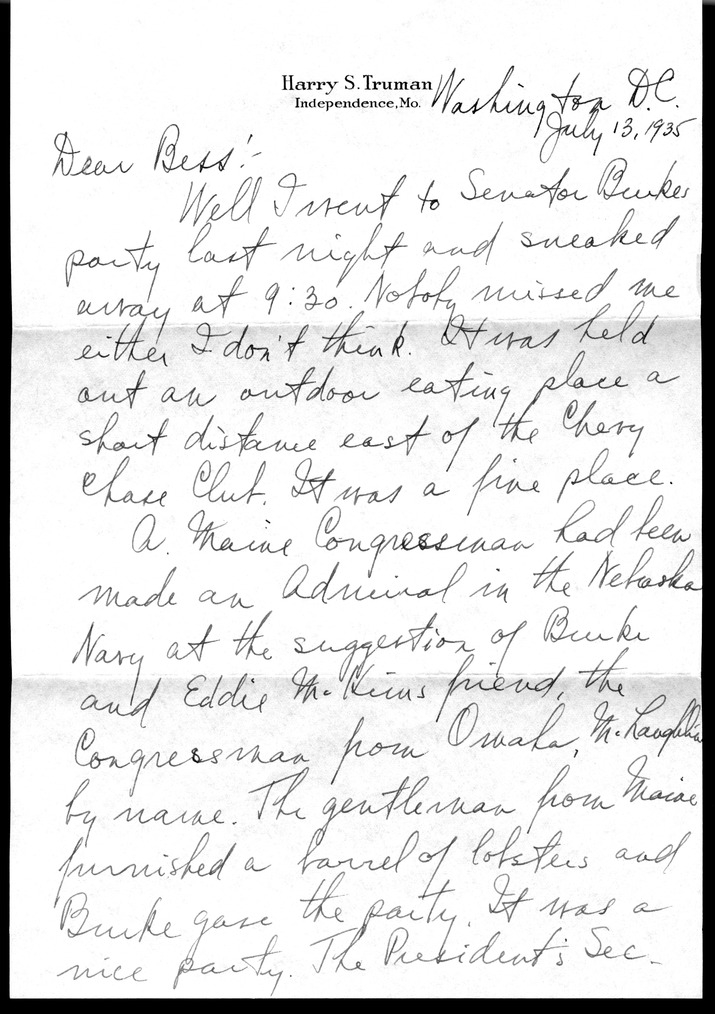 Harry S. Truman
Independence, Mo.
Washington D.C.
July 13, 1935
Dear Bess:-
Well I went to Senator Burkes
party last night and sneaked
away at 9:30. Nobody missed me
either I don't think. It was held
out an outdoor eating place a
short distance east of the Chevy
Chase Club. It was a fine place.
A. Maine Congressman had been
made an Admiral in the Nebraska
Navy at the suggestion of Burke
and Eddie McKims friend, the
Congressman from Omaha, McLaughlin
by name. The gentleman from Maine
furnished a barrel of lobsters and
Burke gave the party. It was a
nice party. The President's Sec-